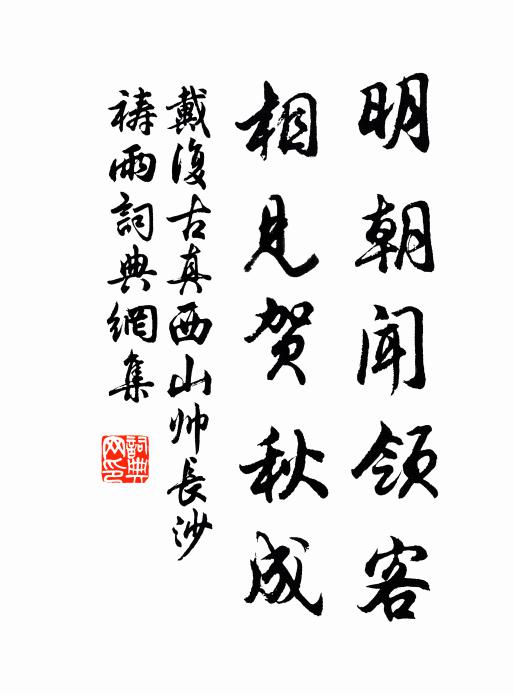 明朝闻领客
相见贺秋成
戴復古真西山帅長沙
禱雨詞典網集
詞典
网印